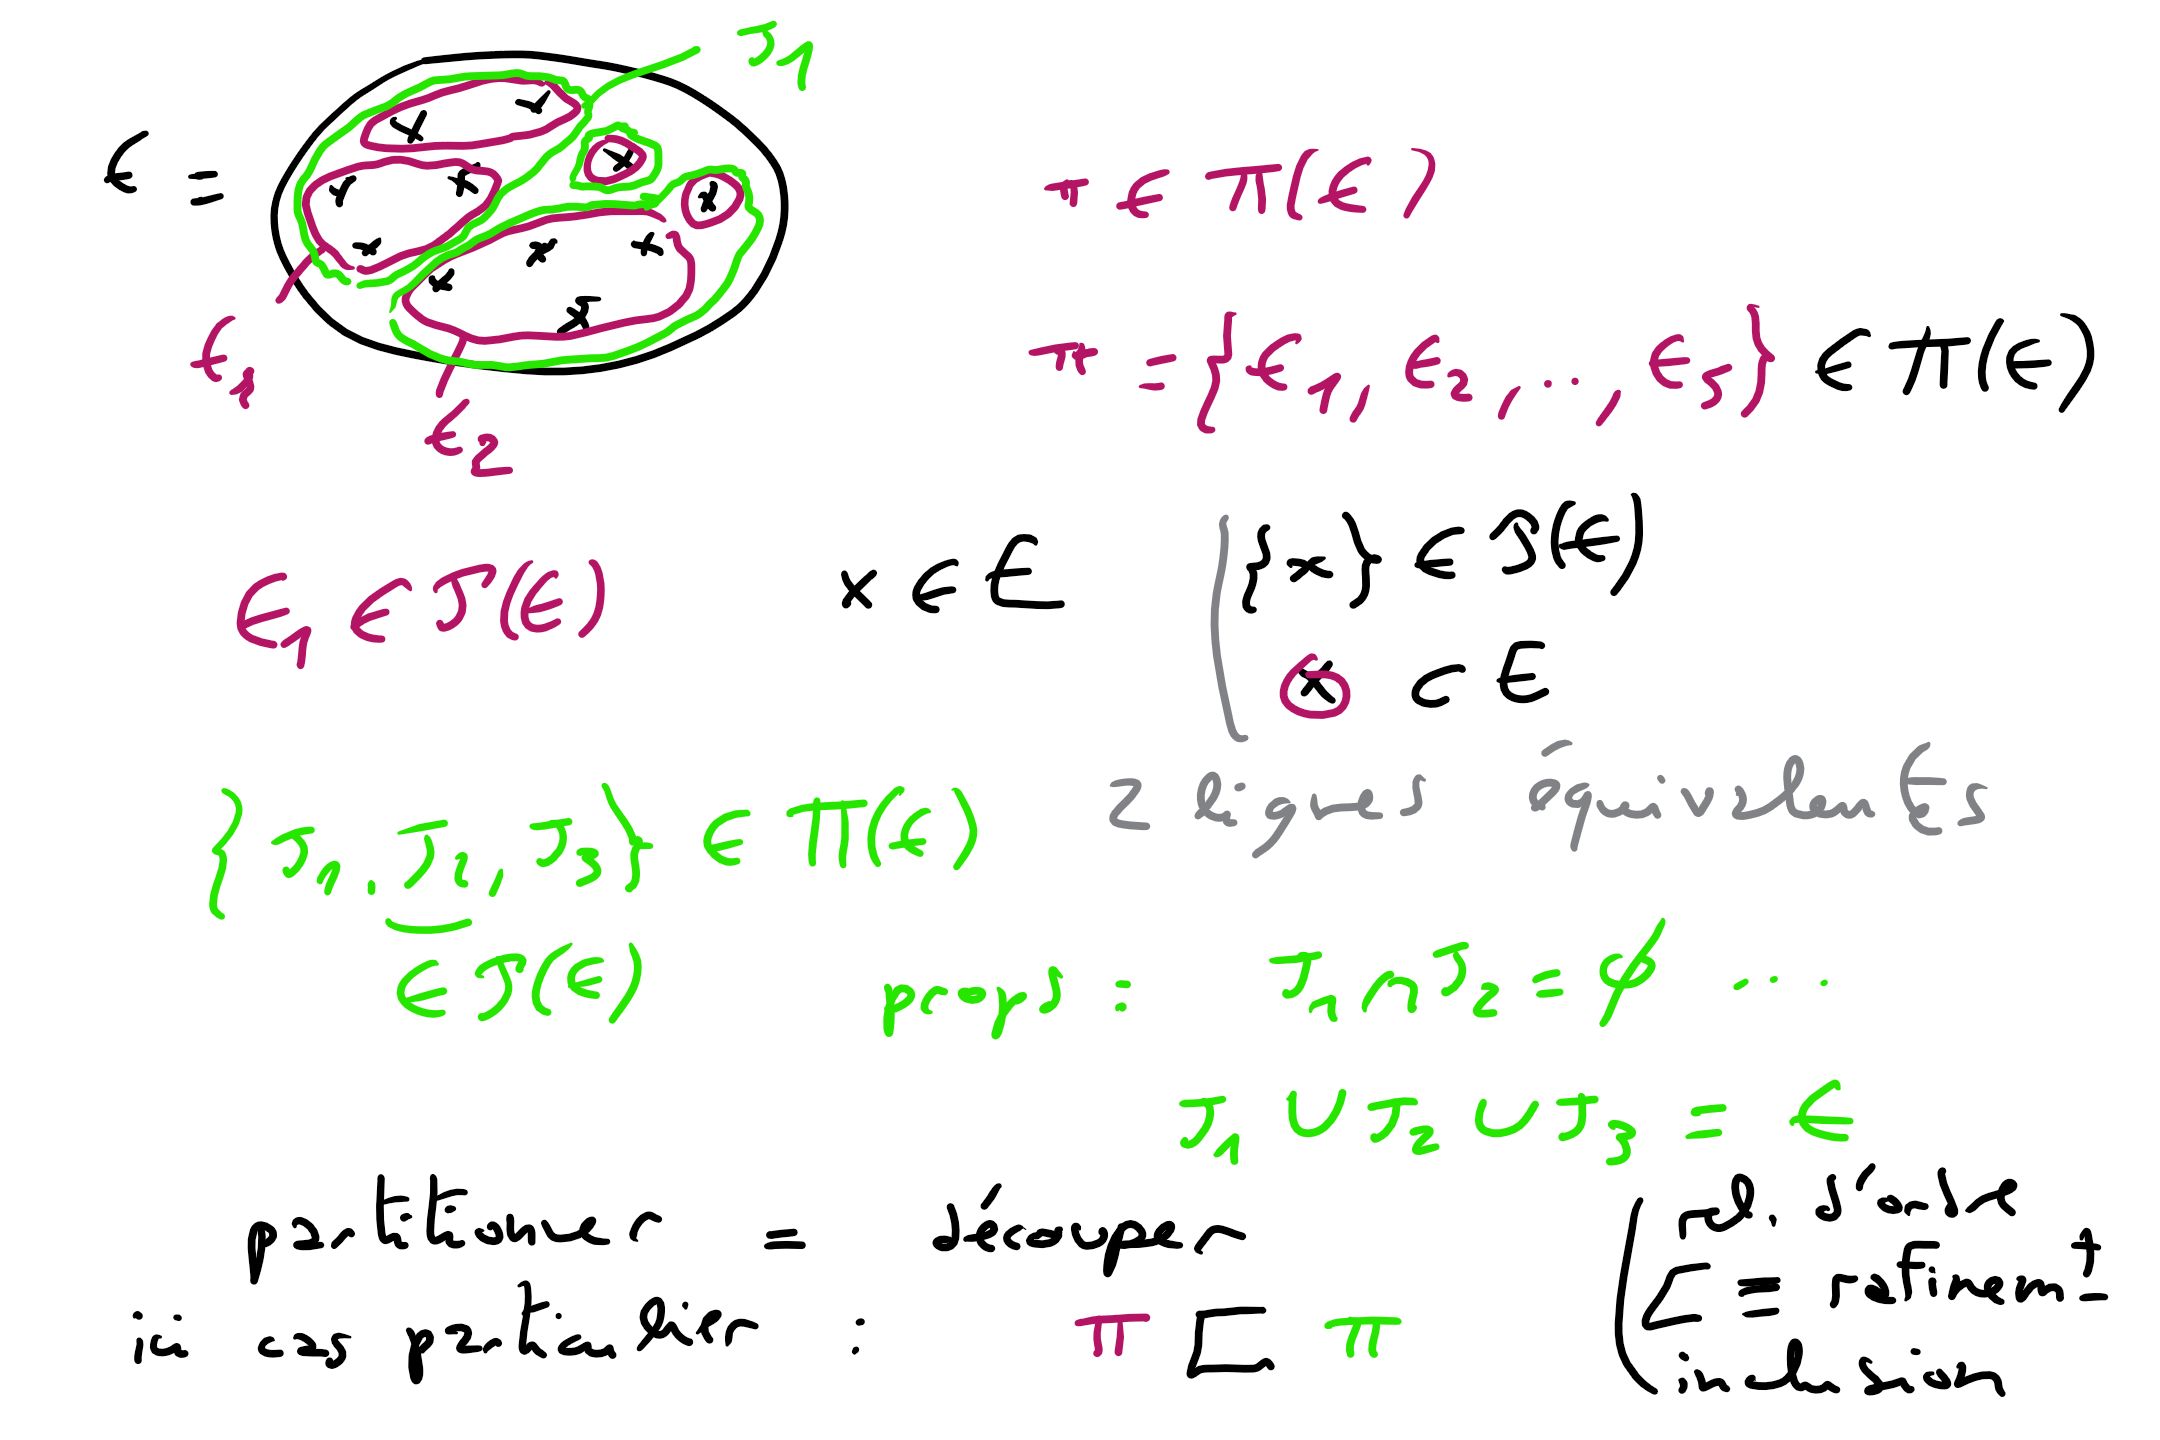 J1
E =
π ∈ Π(E)
E1
π = {E1, E2, ..., E5} ∈ Π(E)
E2
E1 ∈ P(E)
x ∈ E
{x} ∈ P(E)
x ⊂ E
2 lignes équivalentes
{J1, J2, J3} ∈ Π(E)
∈ P(E)
props : J1 ∩ J2 = ∅ ...
J1 ∪ J2 ∪ J3 = E
partitionner = découper
rel. d'ordre
ici cas particulier : π ⊏ π
⊏ ≡ rafinemt
inclusion